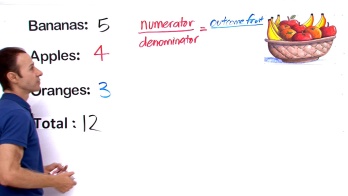 Bananas: 5
Apples: 4
Oranges: 3
Total : 12
numerator
denominator
=